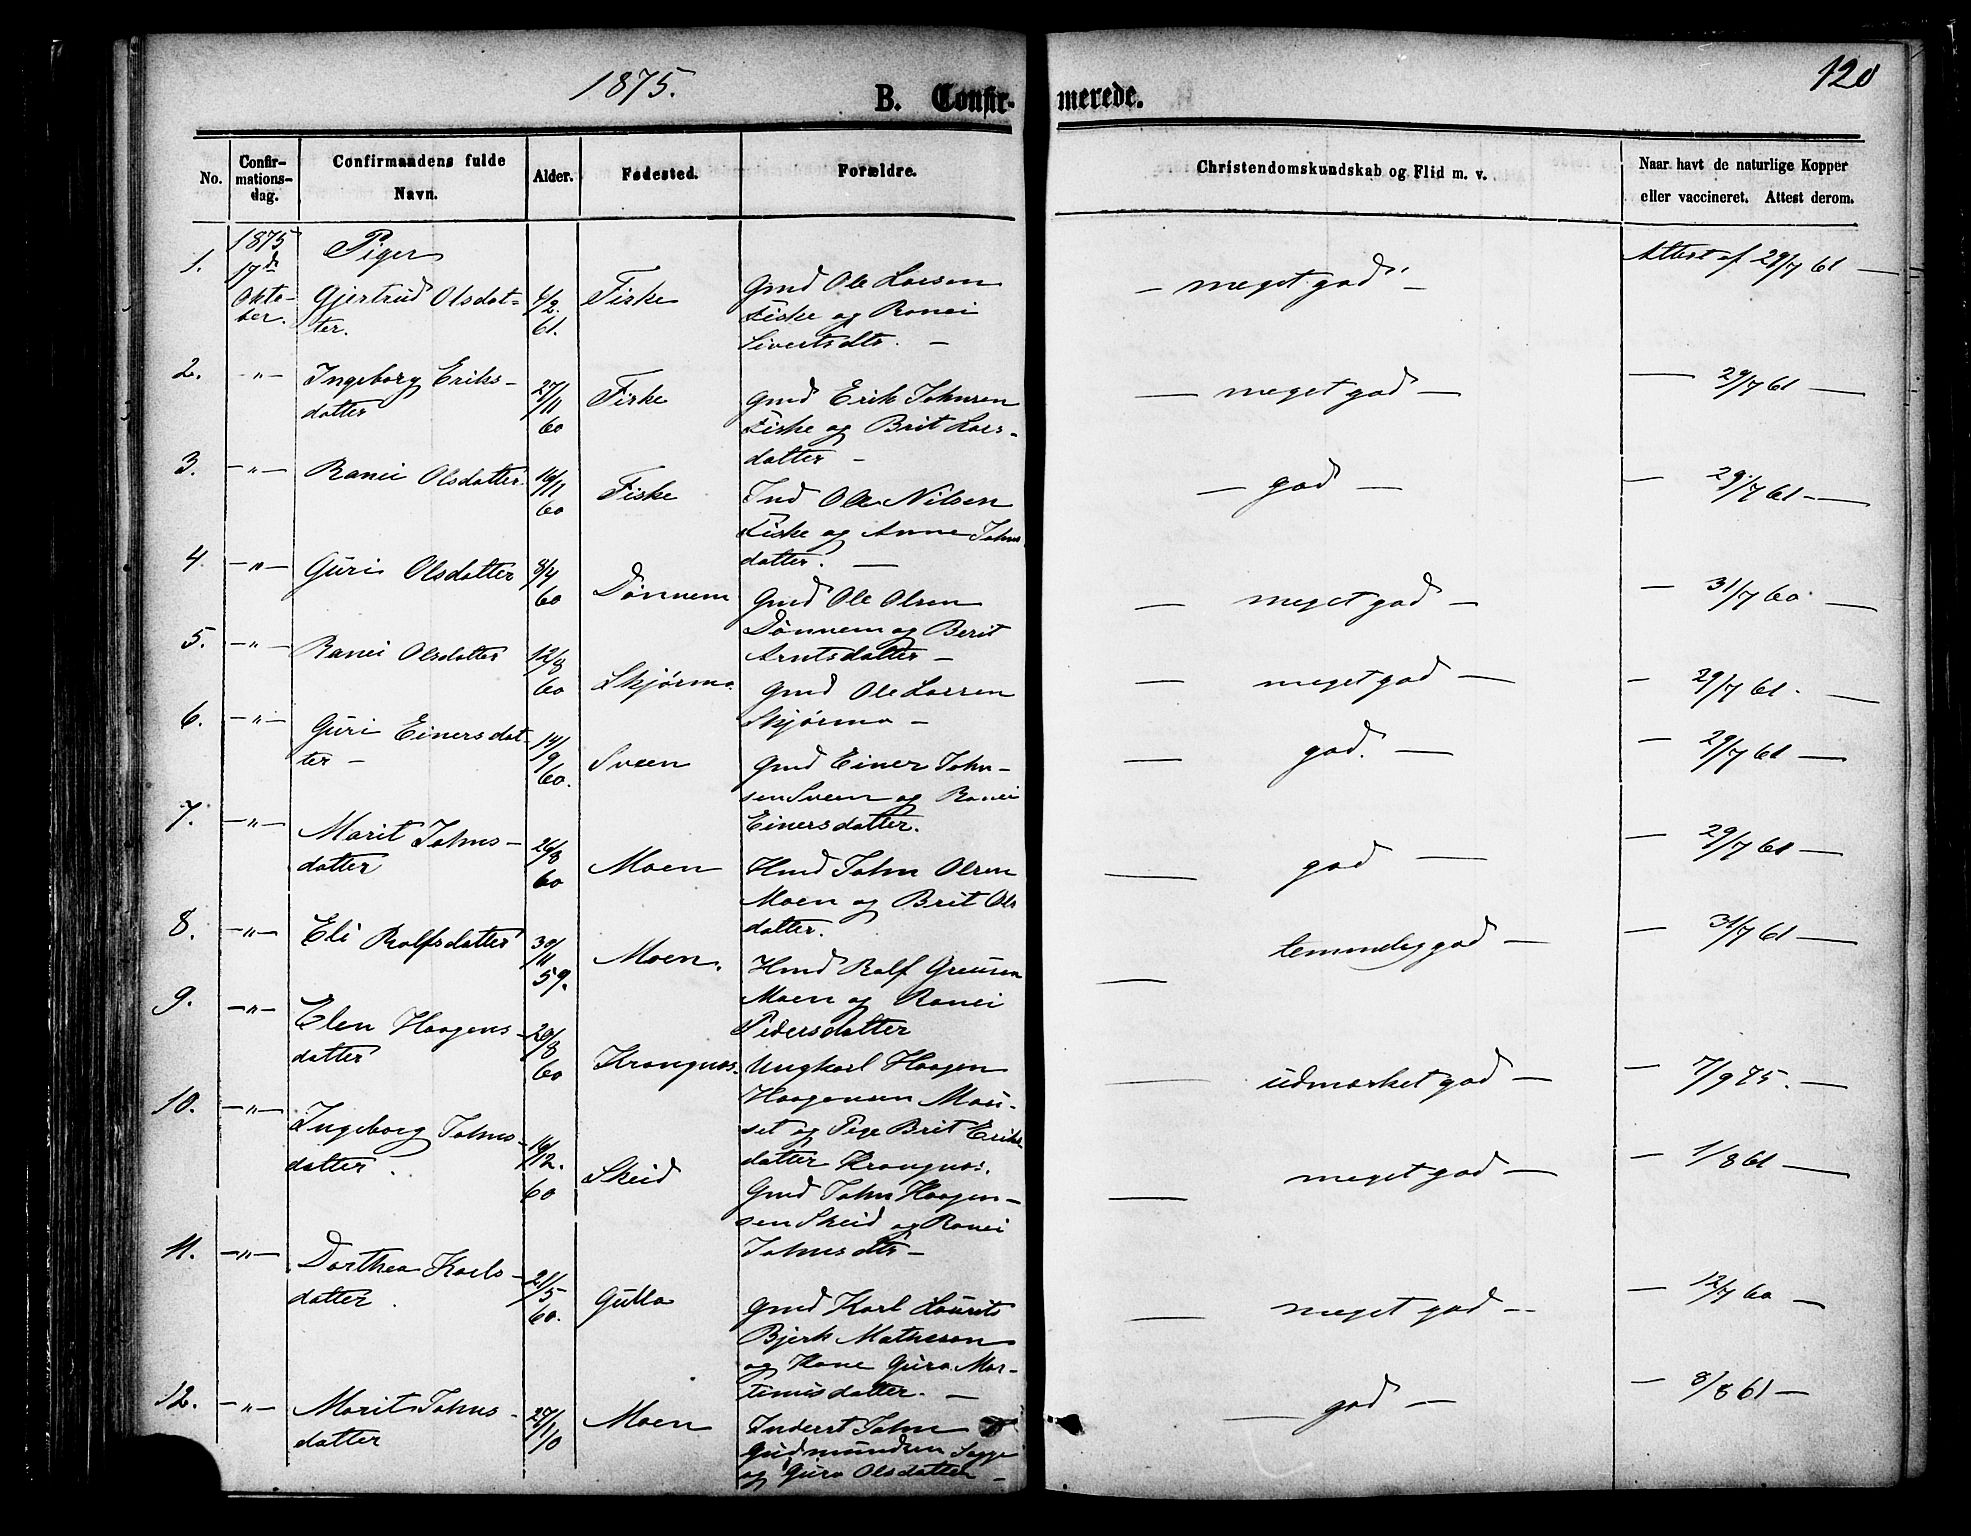 1875.
B. Confir-
merede.
120
No.
Confir-
mations-
dag.
Confirmandens fulde
Navn.
Alder.
Fødested.
Forældre.
Christendomskundskab og Flid m. v.
Naar havt de naturlige Kopper
eller vaccineret. Attest derom.
1.
1875
17de
Okto-
ber.
Piger
Gjertrud Olsdat-
ter.
4/2.
61.
Fiske
Gmd Ole Larsen
Fiske og Ranei
Sivertsdtr. —
— meget god —
Attest af 29/7 61 —
2.
-"-
Ingeborg Eriks-
datter
27/11
60
Fiske
Gmd Erik Johnsen
Fiske og Brit Lars-
datter —
— meget god —
— 29/7 61 —
3.
-"-
Ranei Olsdatter
16/11
60
Fiske
Ind Ole Nilsen
Fiske og Anne Johns
datter. —
— god —
— 29/7 61 —
4.
-"-
Guri Olsdatter
8/4
60
Dønnem
Gmd Ole Olsen
Dønnem og Berit
Arntsdatter —
— meget god —
— 31/7 60. —
5.
-"-
Ranei Olsdatter
12/8
60
Skjørmo.
Gmd Ole Larsen
Skjørmo —
— meget god —
— 29/7 61. —
6.
-"-
Guri Einersdat-
ter —
14/9
60.
Sveen
Gmd Einer John-
sen Sveen og Ranei
Einersdatter.
— god. —
— 29/7 61 —
7.
-"-
Marit Johns-
datter
26/8
60
Moen
Hmd John Olsen
Moen og Brit Ols
datter.
— god —
— 29/7 61 —
8.
-"-
Eli Rolfsdatter
30/11
59.
Moen.
Hmd Rolf
Moen og Ranei
Pedersdatter
— temmelig god —
— 31/7 61 —
9.
-"-
Elen Haagens-
datter
28/8
60
Krangnæs.
Ungkarl Haagen
Haagensen
set og Pige Brit Eriks
datter Krangnæs.
— udmærket god —
— 7/9 75. —
10.
-"-
Ingeborg Johns-
datter.
16/12.
60
Skeid
Gmd John Haagen-
sen Skeid og Ranei
Johnsdtr —
— meget god —
— 1/8 61 —
11.
-"-
Dorthea Karls-
datter.
21/5
60.
Gulla
Gmd Karl Laurits
Bjerk Matheson
og Kone Gura Mar-
tinusdatter. —
— meget god —
— 12/7 60 —
12.
-"-
Marit Johns-
datter
27/1
Moen
Inderst John
Gudmundsen
og Gura Olsdatter —
— god —
— 8/8 61 —